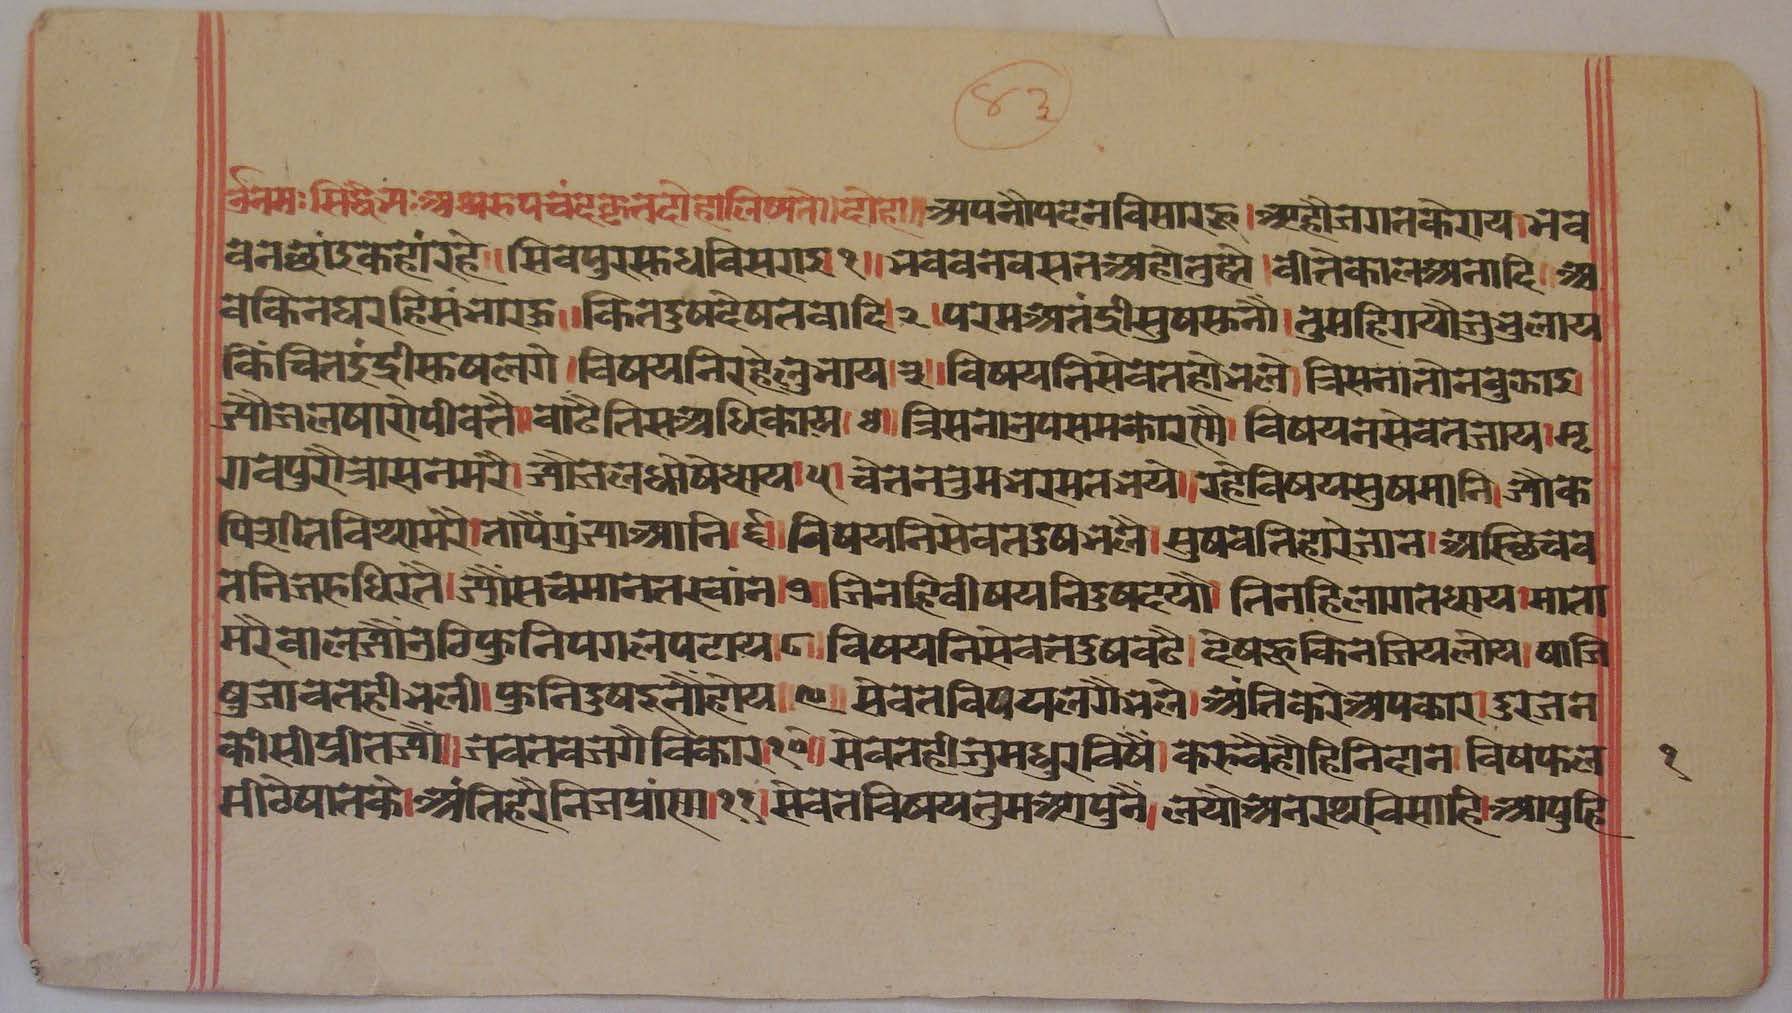 ४३
ॐनमः सिद्धेभ्यः अथ रुपचंद कृत दोहा लिष्यते॥ दोहा॥ अपनौ पद न विसारहू। अहो जगत के राय। भव
वन छांड कहां रहे॥ सिवपुर सुध विसराइ १॥ भव वन वसत अहो तुह्मे। वीते काल अनादि॥ अ
व किन घरहि संभारहू॥ कित दुष देषत वादि। २। परम अतंद्री सुष सुनौं। तुमहि गयौ जु भुलाय
किंचित इंद्री सुष लगे। विषयनि रहे लुभाय। ३॥ विषयनि सेवत हो भले। त्रिसना तो न वुझाइ
ज्यौ जल षारो पीवतै॥ वाटै तिस अधिकाय। ४॥ त्रिसना उपसम कारणै। विषयन सेवत जाय। मृ
ग वपुरौ त्रास न मरै। ज्यौ जल धोषै धाय। ५। चेतन तुम भरमत भये॥ रहे विषय सुष मानि। ज्यौ क
पि सीत विथा मरै। तापै गुंजा आनि। ६। विषयनि सेवत दुष भलै। सुष व तिहारे जान। अस्थि चव
त निज रुधिर तै। ज्यौं सच मानत स्वांन। ७॥ जिनहि वीषयनि दुष दयौ। तिनहि लागत धाय। माता
मारै वाल ज्यौं उठि फुनि पग लपटाय। ८। विषयनि सेवत दुष वटै। देषहू किन जिय लोय। षाजि
षुजावत ही भली। फुनि दुष दूनौं होय। ९॥ सेवत विषय लगै भले। अंति करे अपकार। दुरजन
की सी प्रीत ज्यौं॥ जव तव जगै विकार १०॥ सेवत ही जु मधुर विषै। करुवै होहि निदान। विष फल
मीठे षात के। अंति हरै निज प्रांण। ११। सेवत विषय तुम आपुनै। लयौ अनरथ विसाहि। आपुहि
१